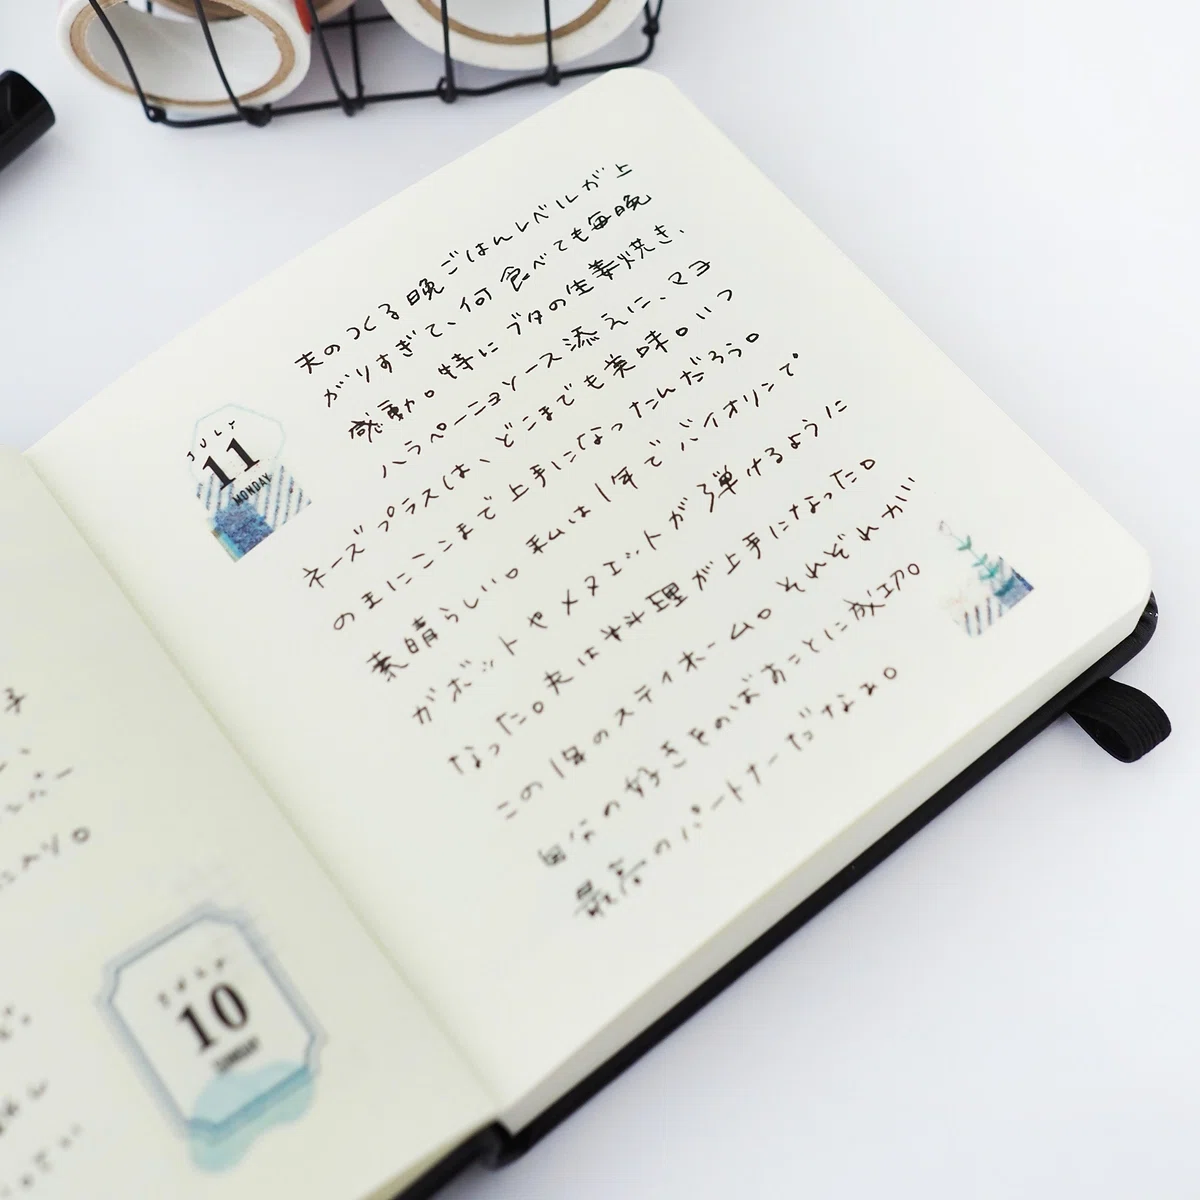 夫のつくる晩ごはんレベルが上
がりすぎて、何食べても毎晩
感動。特にブタの生姜焼き、
ハラペーニョソース添えに、マヨ
ネーズプラスは、どこまでも美味。いつ
の主にここまで上手になったんだろう。
素晴らしい。私は1年でバイオリンで
ガボットやメヌエットが弾けるように
なった。夫は料理が上手になった。
この1年のステイホーム。それぞれが
自分の好きをのばすことに成功。
最高のパートナーだなぁ。
JULY
11
MONDAY
JULY
10
SUNDAY